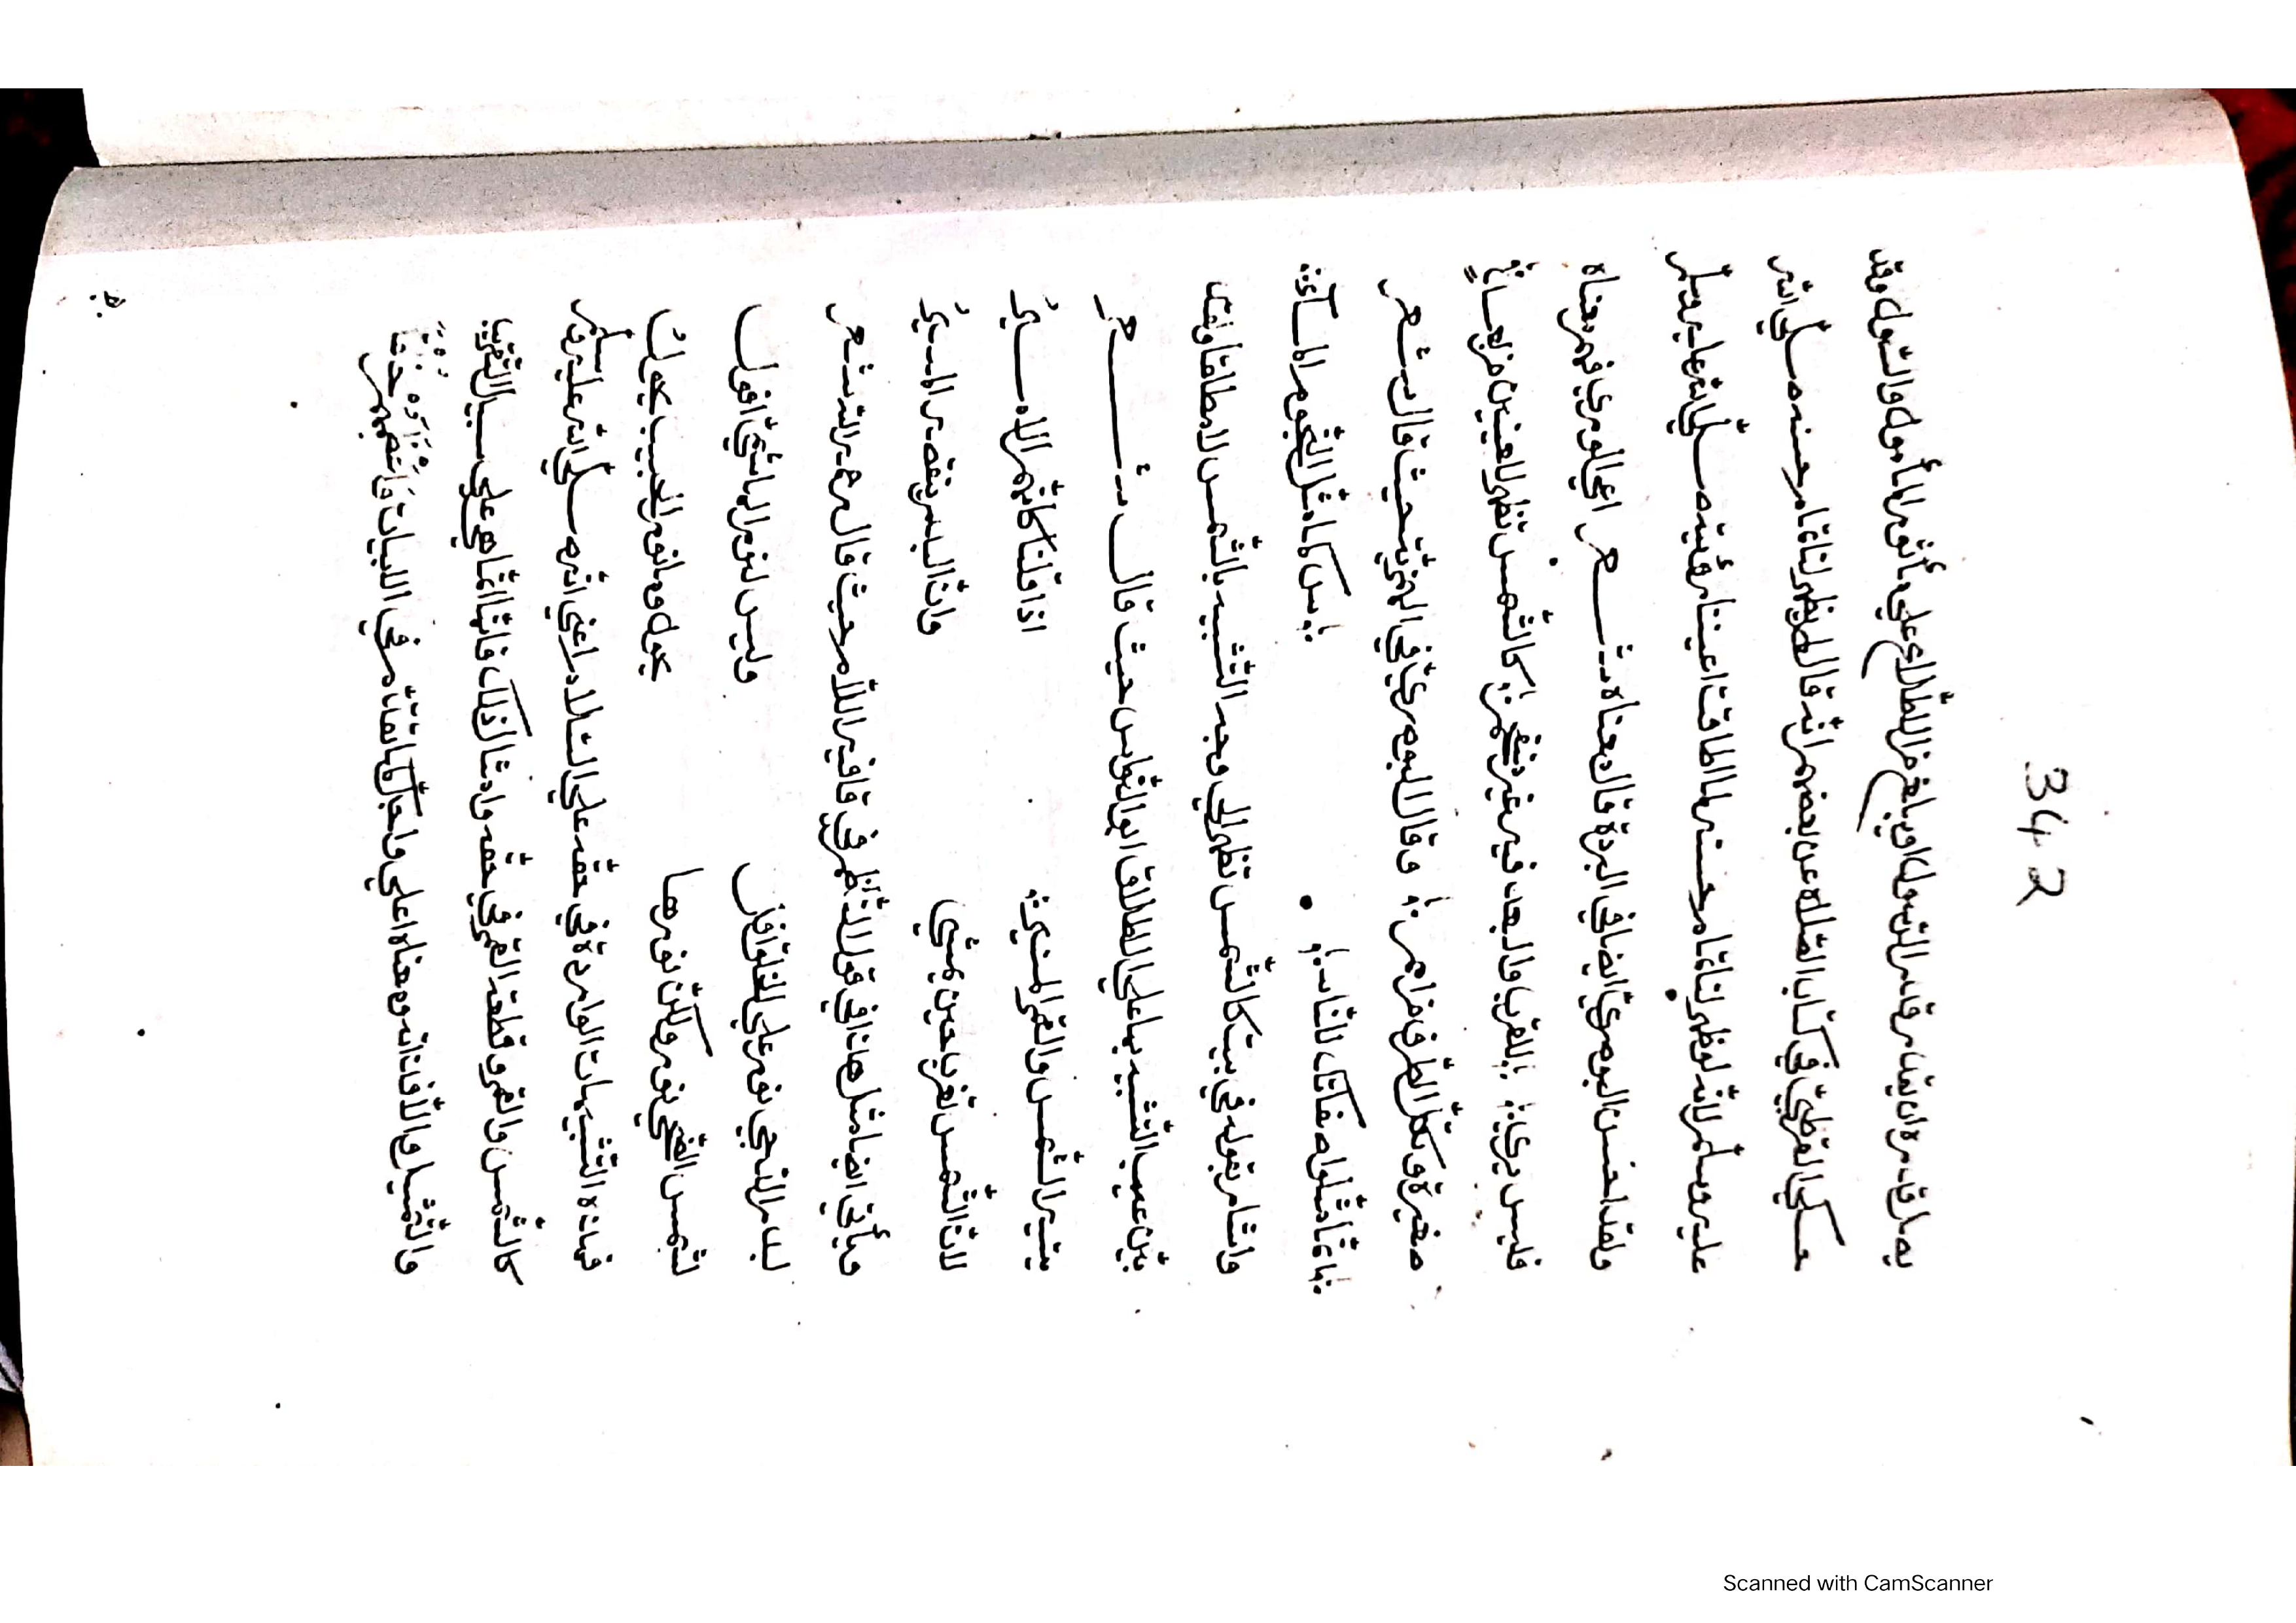 342
يصل قدره ان يقدر قدر الرسول او يبلغ من الاطلاع علي مأثور المأمول والسول وقد
حكي القرطبي في كتاب الصلاة عن بعضهم انه قال لم يظهر لنا تمام حسنه صلي الله
عليه وسلم لانه لو ظهر لنا تمام حسنه لما اطاقت اعيننا رؤيته صلي الله عليه وسلم
ولقد احسن البوصيري ايضا في البردة قال معناه شعر اعي الوري فهم معناه
فليس يري للقرب والبعد فيه غير منفحم كالشمس تظهر للعينين من بعد
صغيرة وتكل الطرف من امم وقال البوصيري في الهمزية حيث قال شعر
انما مثلوا صفاتك للناس كما مثل النجوم الماء
واشار بقوله في بيت كالشمس تظهر الي وجه التشبيه بالشمس لا مطلقا ولقد
بين عيب التشبيه بها علي الاطلاق ابو النواس حيث قال شعر
يتيه الشمس والقمر المنير اذا قلنا كانهم الامير
لان الشمس تغرب حين يمسي وان البدر ينقصه المسير
ويأتي ايضا مثل هذا في قول الناظم في قافية اللام حيث قال رحمه الله شعر
لبدر الدجي نور علي الخلق افل وليس لنور الهاشمي افول
لشمس الضحي نور ولكن نورها يحول ونور الحبيب يحول
فهذه التشبيهات الواردة في حقه علي اعني انه صلي الله عليه وسلم
كالشمس والقمر وقطعة القمر في حقه وامثال ذلك فانما هي علي سبيل التقريب
والتمثيل والا فذاته ومعناه اعلي واجل لما تقدم في البيات
Scanned with CamScanner